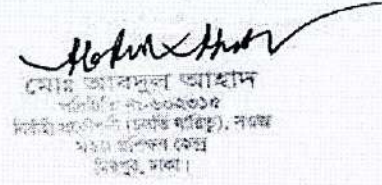 মোঃ আবদুল আহাদ
পরিচিতি নং-৬০২৩১৫
নির্বাহী প্রকৌশলী (চলতি দায়িত্ব), সওজ
সওজ প্রশিক্ষণ কেন্দ্র
মিরপুর, ঢাকা।